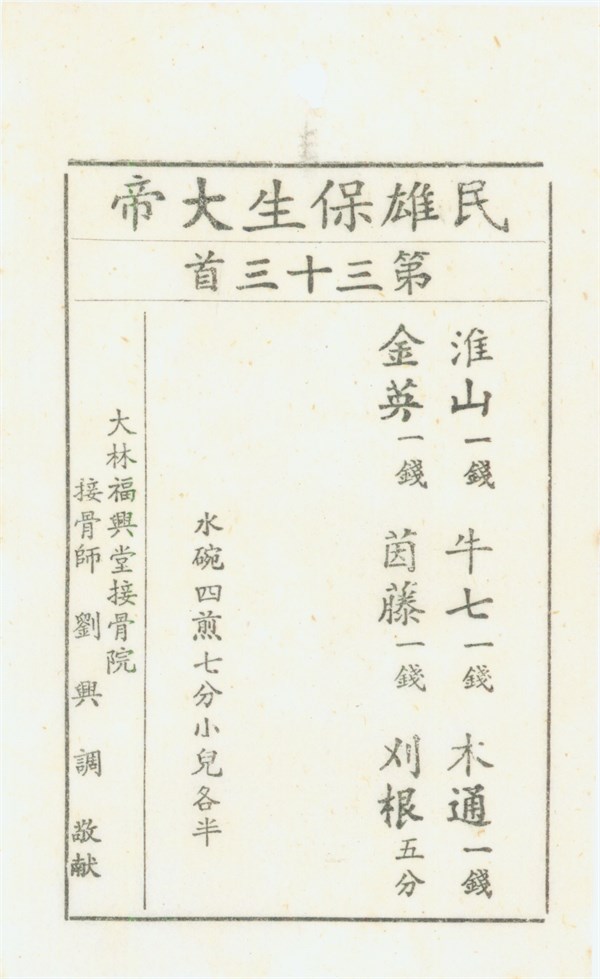 民雄保生大帝
第三十三首
淮山一錢 牛七一錢 木通一錢
金英一錢 茵藤一錢 刈根五分
水碗四煎七分小兒各半
大林福興堂接骨院
接骨師 劉興調 敬献